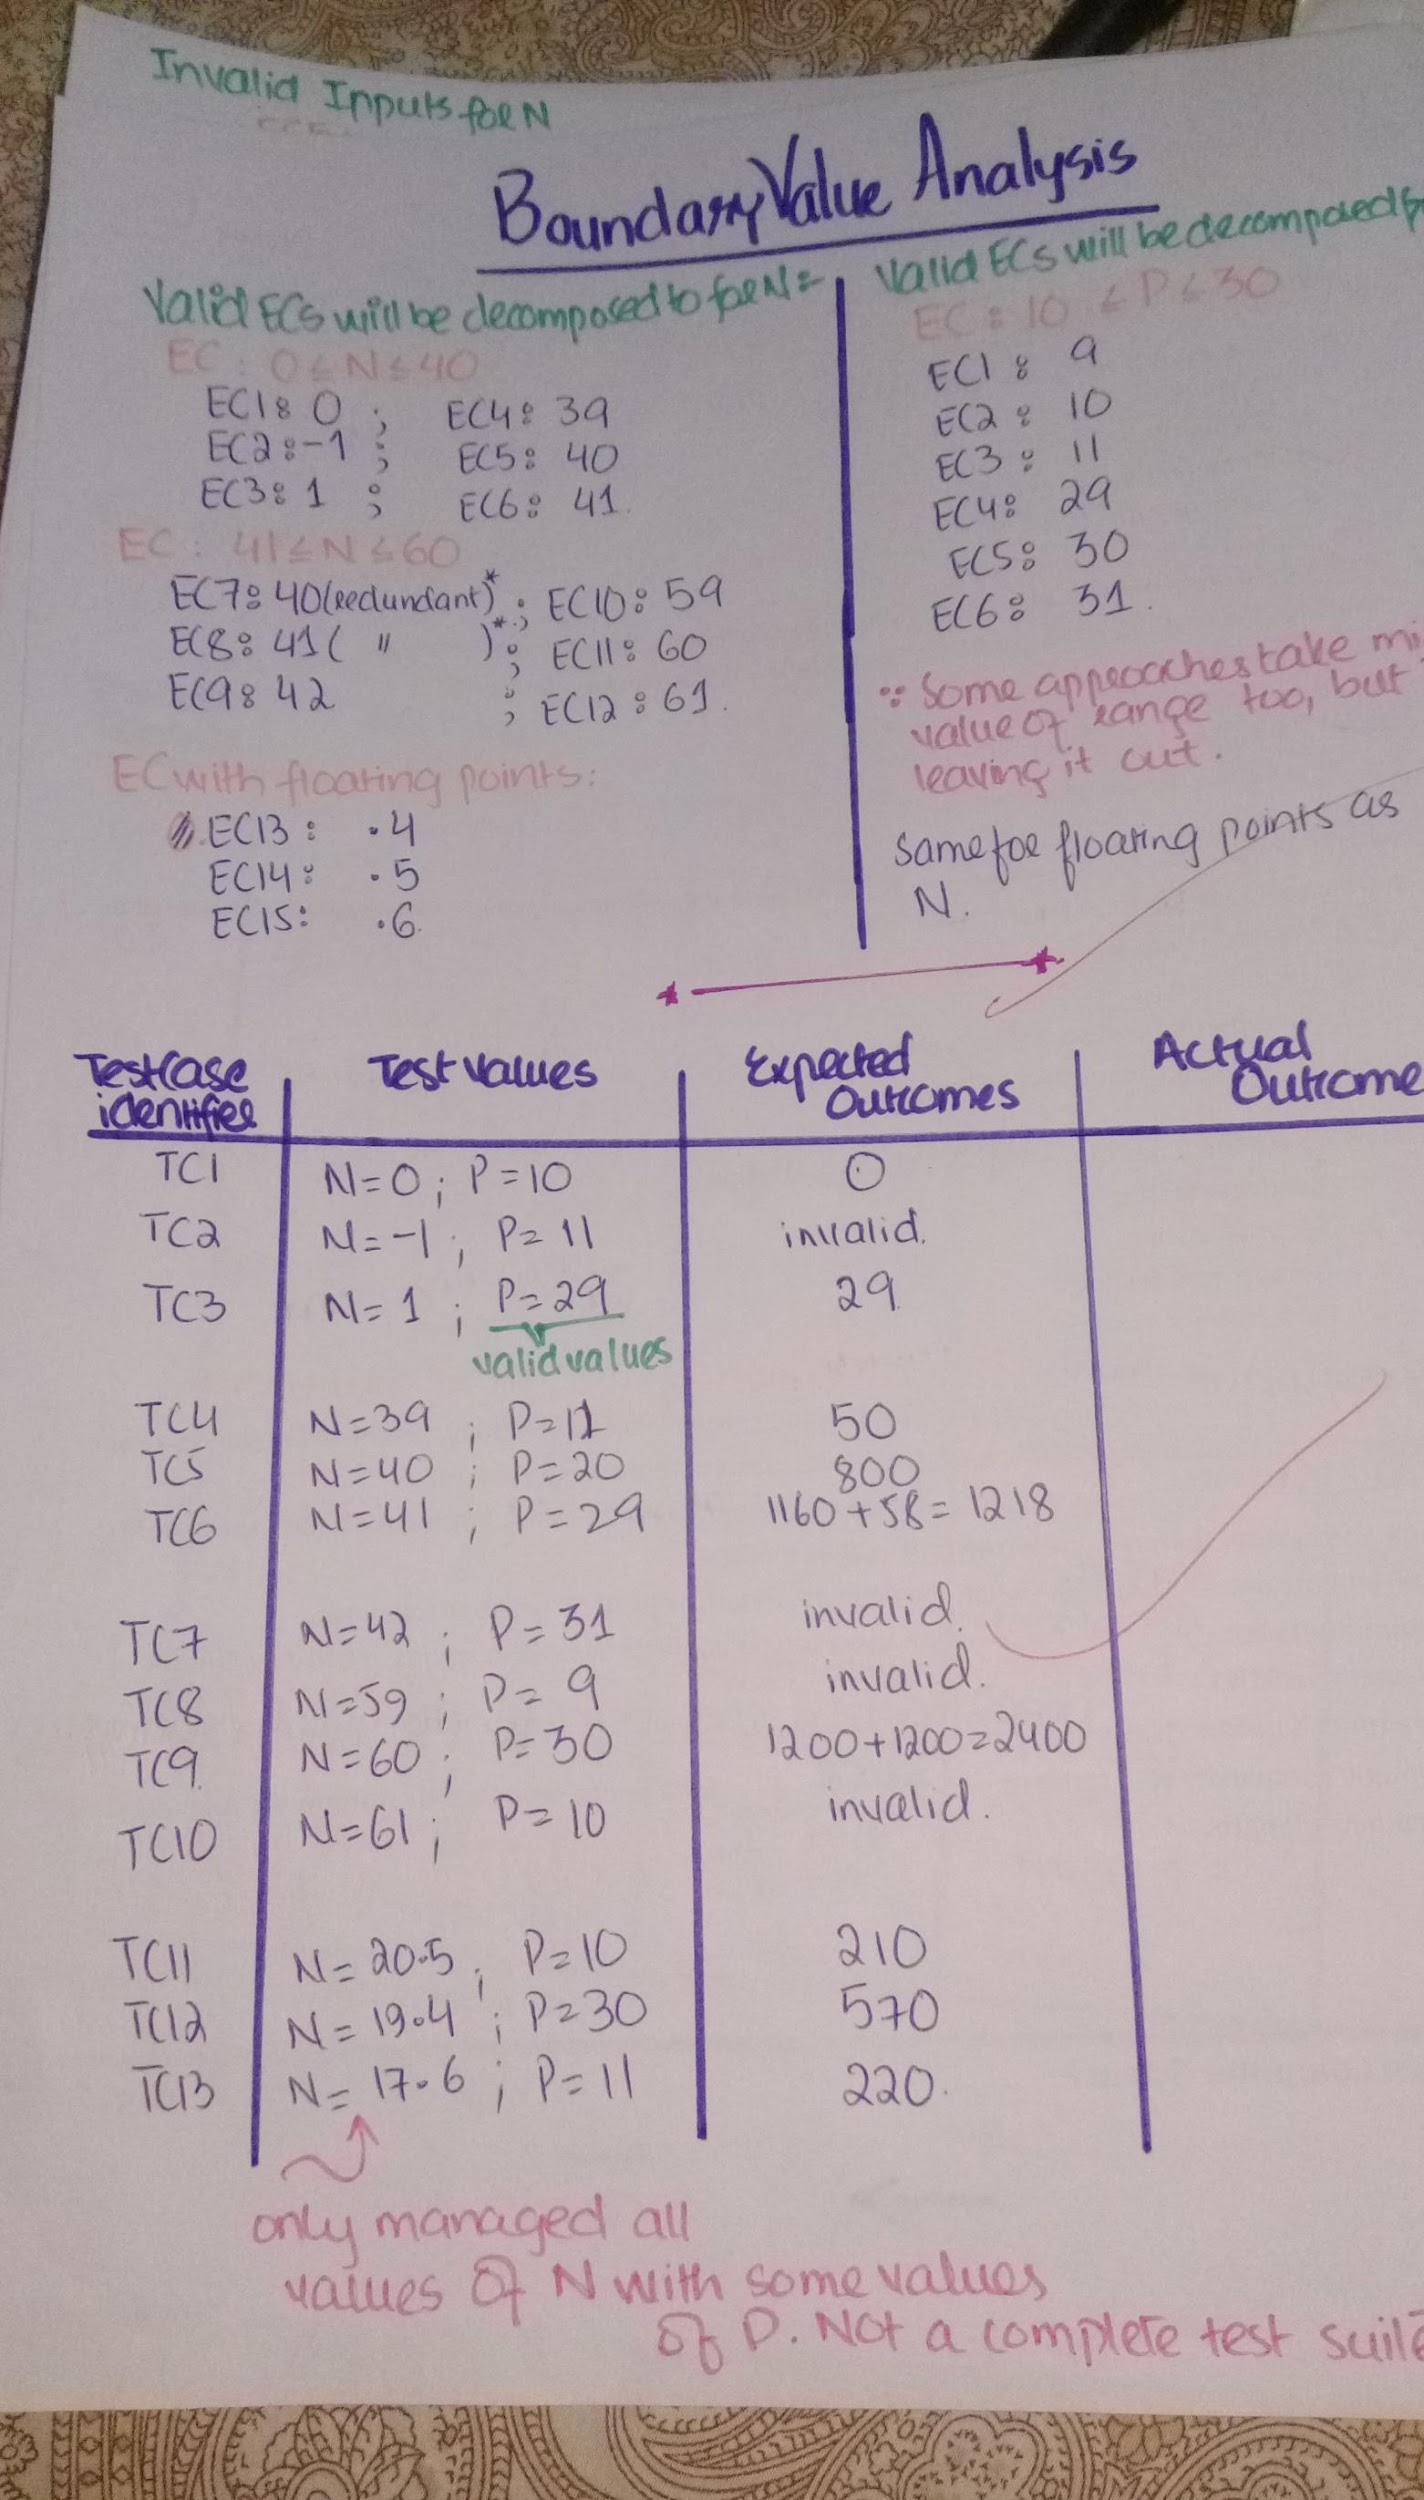 Invalid Inputs for N
Boundary Value Analysis
Valid ECs will be decomposed to for N =
EC : 0 ≤ N ≤ 40
EC1: 0 ; EC4: 39
EC2: -1 ; EC5: 40
EC3: 1 ; EC6: 41.
EC : 41 ≤ N ≤ 60
EC7: 40 (redundant)* ; EC10: 59
EC8: 41 ( " )* ; EC11: 60
EC9: 42 ; EC12: 61.
EC with floating points:
EC13 : .4
EC14: .5
EC15: .6.
Valid ECs will be decomposed
EC : 10 ≤ P ≤ 30
EC1 : 9
EC2 : 10
EC3 : 11
EC4: 29
EC5: 30
EC6: 31.
∵ Some approaches take
value of range too, but
leaving it out.
Same for floating points as
N.
Testcase identifier | Test values | Expected Outcomes | Actual Outcome
TC1 N=0 ; P=10 0
TC2 N=-1 ; P=11 invalid.
TC3 N=1 ; P=29 29
valid values
TC4 N=39 ; P= 50
TC5 N=40 ; P=20 800
TC6 N=41 ; P=29 1160+58=1218
TC7 N=42 ; P=31 invalid.
TC8 N=59 ; P=9 invalid.
TC9. N=60 ; P=30 1200+1200=2400
TC10 N=61 ; P=10 invalid.
TC11 N=20.5 ; P=10 210
TC12 N=19.4 ; P=30 570
TC13 N=17.6 ; P=11 220.
only managed all
values of N with some values
of P. Not a complete test